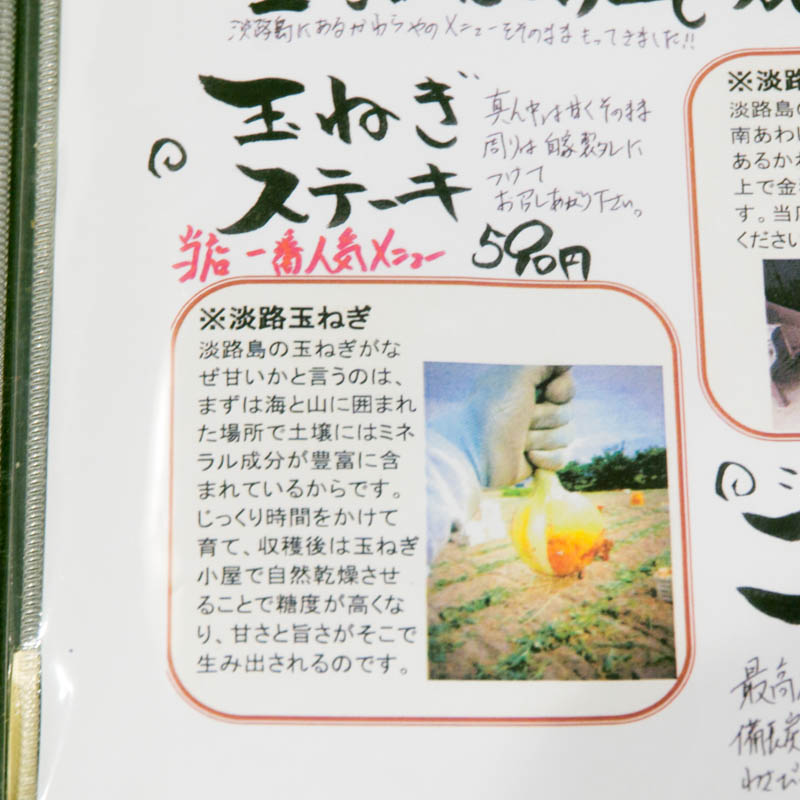 淡路島にあるかわらやのメニューをそのままもってきました!!
玉ねぎ
ステーキ
真ん中は甘くそのまま
周りは自家製タレに
つけて
お召しあがり下さい。
当店一番人気メニュー 590円
※淡路玉ねぎ
淡路島の玉ねぎがな
ぜ甘いかと言うのは、
まずは海と山に囲まれ
た場所で土壌にはミネ
ラル成分が豊富に含
まれているからです。
じっくり時間をかけて
育て、収穫後は玉ねぎ
小屋で自然乾燥させ
ることで糖度が高くな
り、甘さと旨さがそこで
生み出されるのです。
※淡路
淡路島の
南あわ
あるか
上で金
す。当店
ください
最高
備長炭
わさび